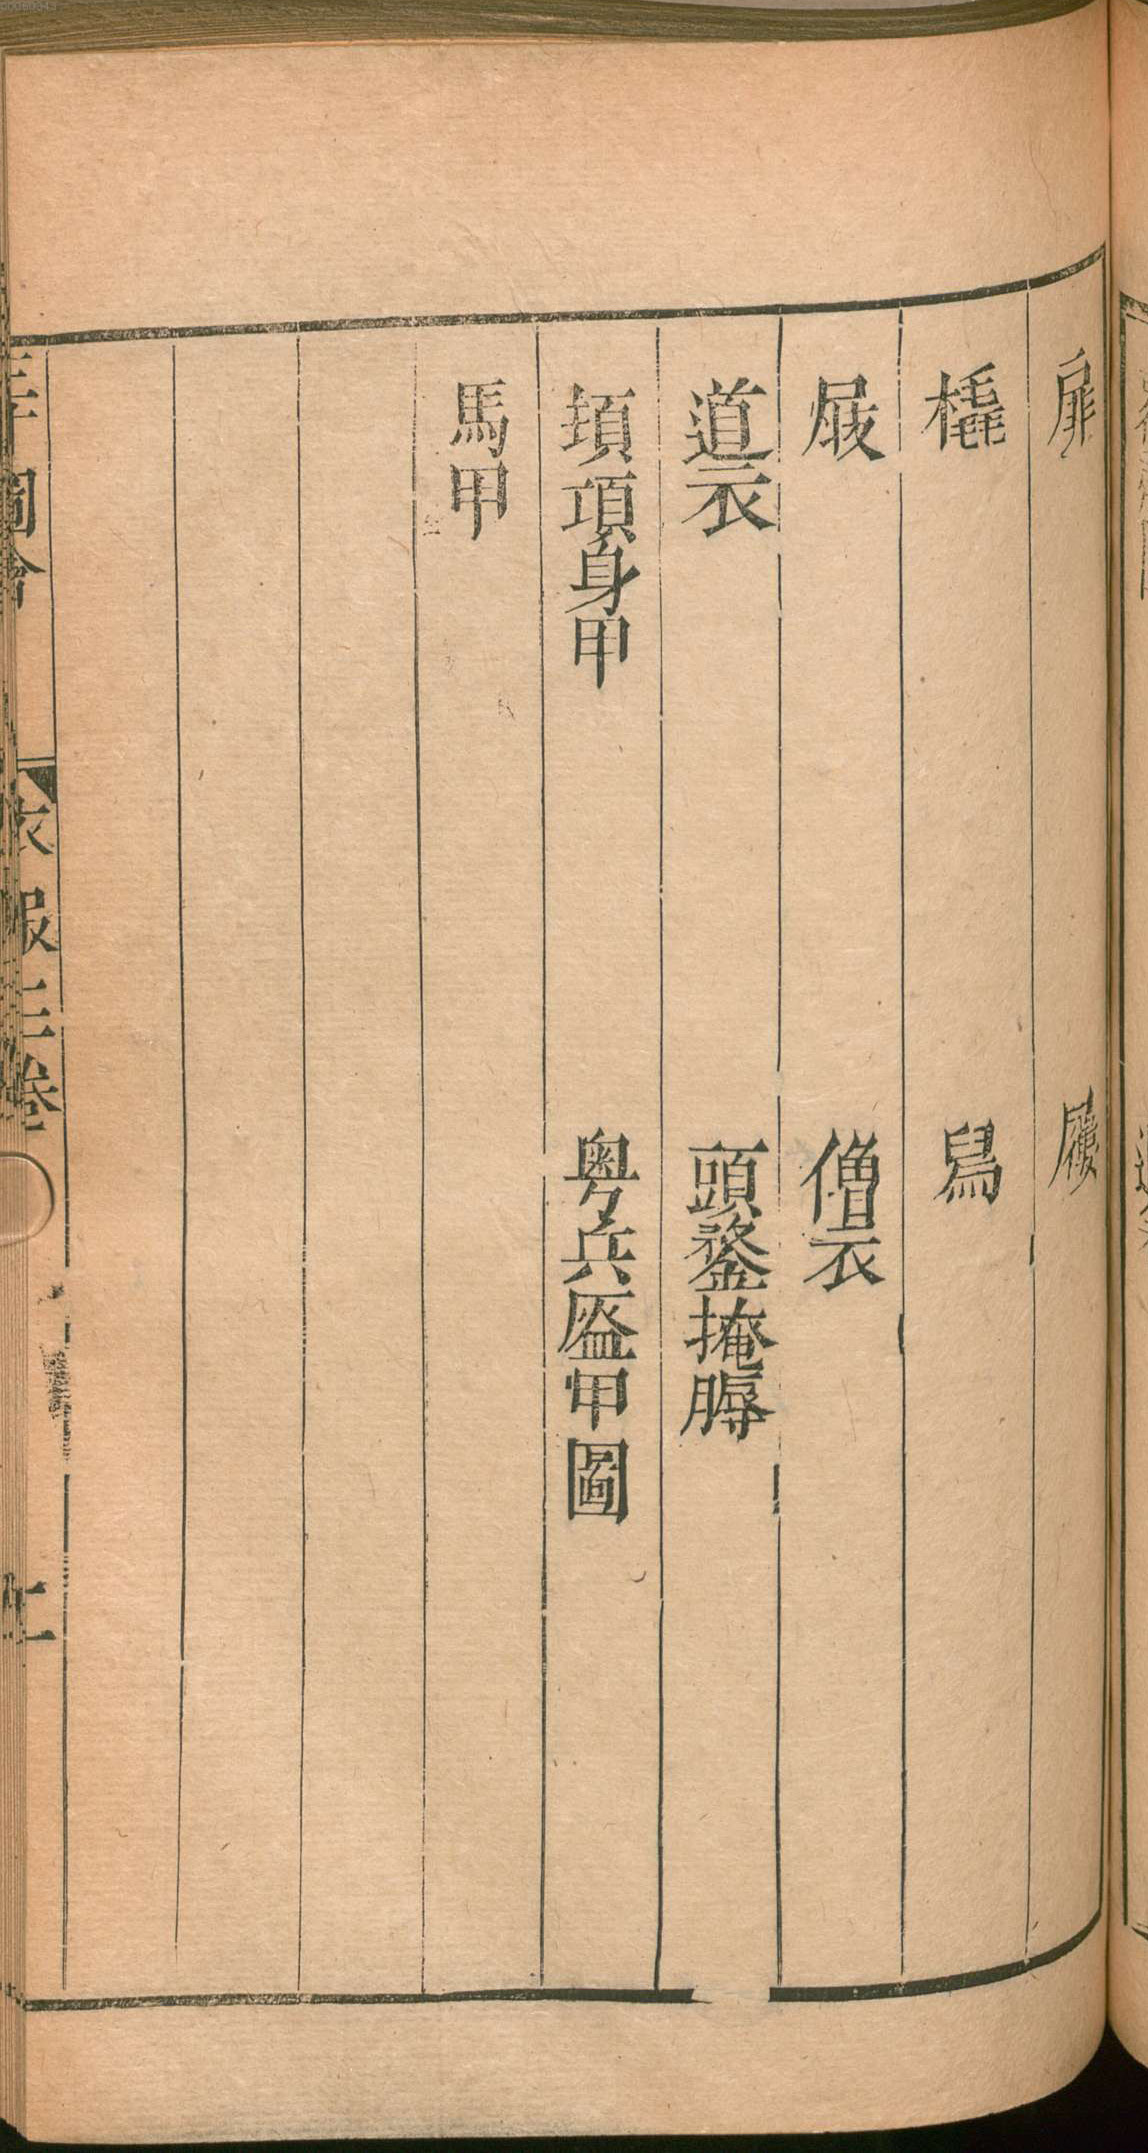 扉　屨
橇　舄
屐　僧衣
道衣　頭鍪掩膊
㩒項身甲　粤兵盔甲圖
馬甲
圖會　衣服三卷